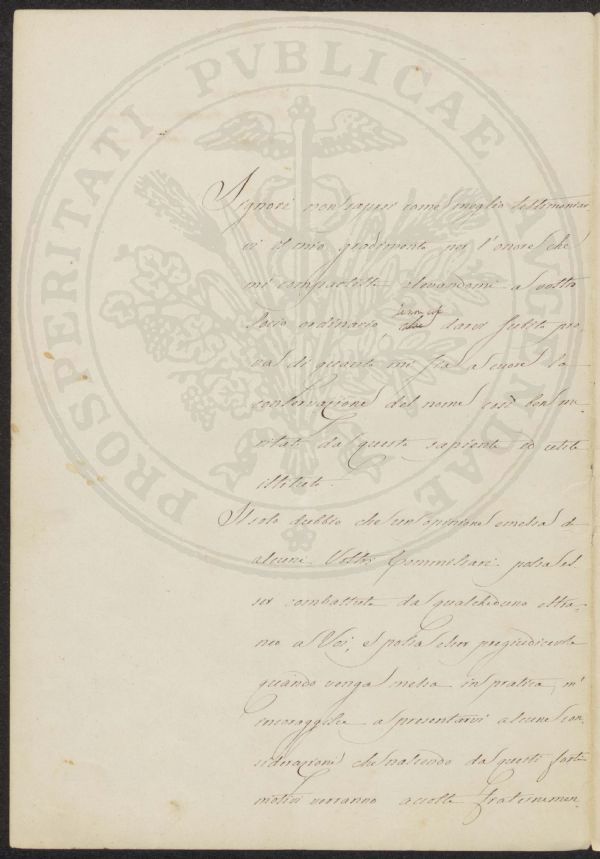 PROSPERITATI PVBLICAE AVGENDAE
Signori non saprei come meglio testimoniar
vi il mio gradimento per l'onore che
mi compartiste elevandomi a vostro
Socio ordinario, se non col
darvi subita pro
va di quanto mi stia a cuore la
conservazione del nome così ben me
ritato da questo sapiente ed utile
istituto.
Il solo dubbio che un'opinione emessa da
alcuni Vostri Commissari possa es
ser combattuta da qualcheduno estra
neo a Voi, e possa esser pregiudicevole
quando venga messa in pratica, m'
incoraggisce a presentarvi alcune con
siderazioni che nascendo da questi forti
motivi verranno accolte fraternamen